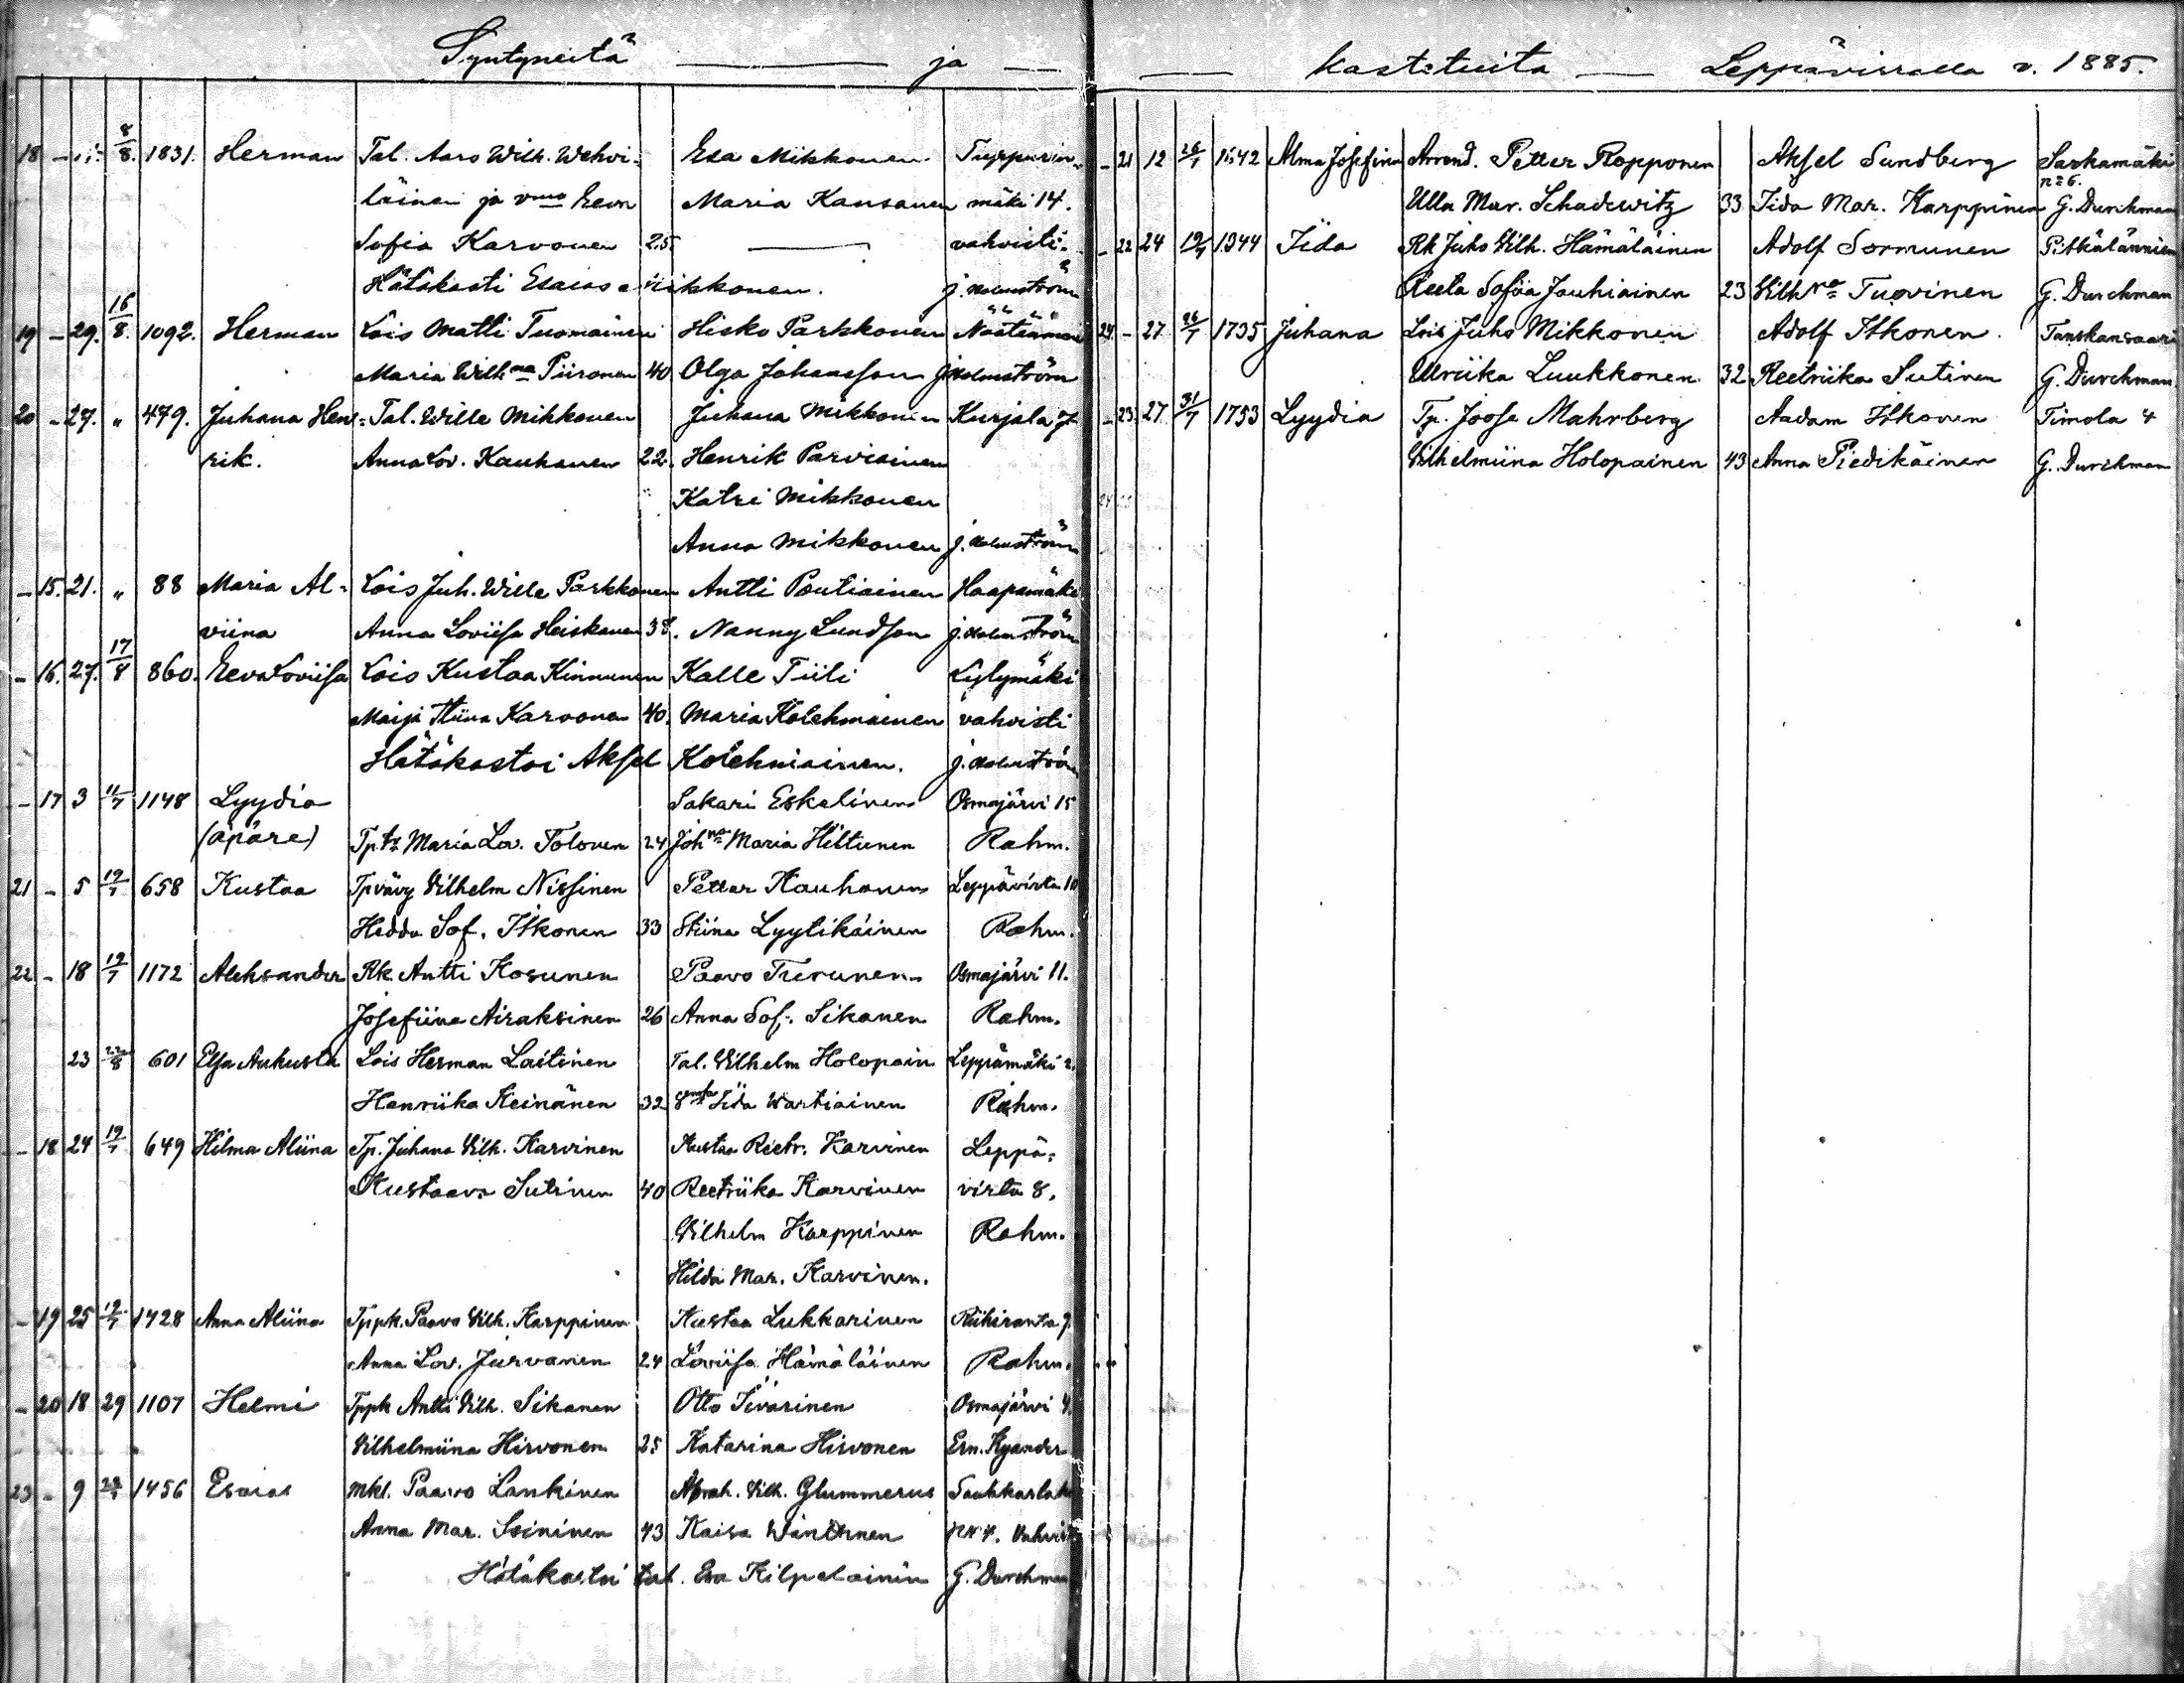 Syntyneitä — ja —
18 - 8/8. 1831. Herman Tal. Aaro Wilh. Wehvi- Esa Mikkonen. Turpurin-
läinen ja vmo Eeva Maria Kansanen mäki 14.
Sofia Karvonen 25 — vahvisti:
Hätäkasti Esaias Mikkonen. J. Holmström
19 - 29. 16/8. 1092. Herman Lois Matti Tuomainen Hisko Parkkonen Näätäm
Maria Wilhna Piironen 40 Olga Johansson J. Holmström
20 - 27. " 479. Juhana Hen- Tal. Wille Mikkonen Juhana Mikkonen Kurjala 7
rik. Anna Lov. Kauhanen 22. Henrik Parviainen
Katri Mikkonen
Anna Mikkonen J. Holmström
- 15. 21. " 88 Maria Al- Lois Juh. Wille Parkkonen Antti Poutiainen Haapamäki
viina Anna Loviisa Heiskanen 38. Nanny Lundson J. Holmström
- 16. 27. 17/8 860. Eeva Loviisa Lois Kustaa Kinnunen Kalle Tiili Lylymäki
Maija Stiina Karvonen 40. Maria Kolehmainen vahvisti
Hätäkastoi Aksel Kolehmainen. J. Holmström
- 17 3 11/7 1148 Lyydia Sakari Eskelinen Osmajärvi 15
(äpäre) Tp. tr Maria Lov. Tolonen 24 Johna Maria Hiltunen Rahm.
21 - 5 19/7 658 Kustaa Tpvävy Vilhelm Nissinen Petter Kauhanen Leppävirta 10
Hedda Sof. Itkonen 33 Stiina Lyytikäinen Rahm.
22 - 18 19/7 1172 Aleksander Rk Antti Kosunen Paavo Turunen Osmajärvi 11.
Josefiina Airaksinen 26 Anna Sof. Sikanen Rahm.
23 601 Elsa Aukusta Lois Herman Laitinen Tal. Vilhelm Holopain Leppämäki 2.
Henriika Keinänen 32 Iida Wartiainen Rahm.
- 18 24 19/7 649 Hilma Aliina Tp. Juhana Vilh. Karvinen Kustaa Reetr. Karvinen Leppä-
Kustaava Sutinen 40 Reetriika Karvinen virta 8.
Vilhelm Karppinen Rahm.
Hilda Mar. Karvinen.
- 19 25 19/7 1428 Anna Aliina Tppk. Paavo Vilh. Karppinen Kustaa Lukkarinen Riihiranta 7.
Anna Lov. Jurvanen 24 Loviisa Hämäläinen Rahm.
- 20 18 29 1107 Helmi Tppk Antti Vilh. Sikanen Otto Iivarinen Osmajärvi 4.
Vilhelmiina Hirvonen 25 Katarina Hirvonen Ern. Kyander
23 - 9 1456 Esaias Mkl. Paavo Lankinen Abrah. Vilh. Glummerus Saukkarlah
Anna Mar. Soininen 43 Kaisa Wänttinen N 4. Vahvist
Hätäkastoi tal. Eva Kilpeläinen G. Durchman
— kastetuita — Leppävirralla v. 1885.
- 21 12 26/7 1542 Alma Josefina Arrend. Petter Ropponen Aksel Sundberg Sarkamäki
no 6.
Ulla Mar. Schadewitz 33 Iida Mar. Karppinen G. Durchman
- 22 24 19/7 1344 Iida Rk Juho Vilh. Hämäläinen Adolf Sormunen Pitkälännien
Reeta Sofia Jauhiainen 23 Vilhna Tuovinen G. Durchman
24 - 27 26/7 1735 Juhana Lois Juho Mikkonen Adolf Itkonen Tanskansaari
Ulriika Luukkonen 32 Reetriika Sutinen G. Durchman
- 23 27 31/7 1753 Lyydia Tp. Joose Mahrberg Aadam Itkonen Timola 4
Vilhelmiina Holopainen 43 Anna Piedikäinen G. Durchman
24